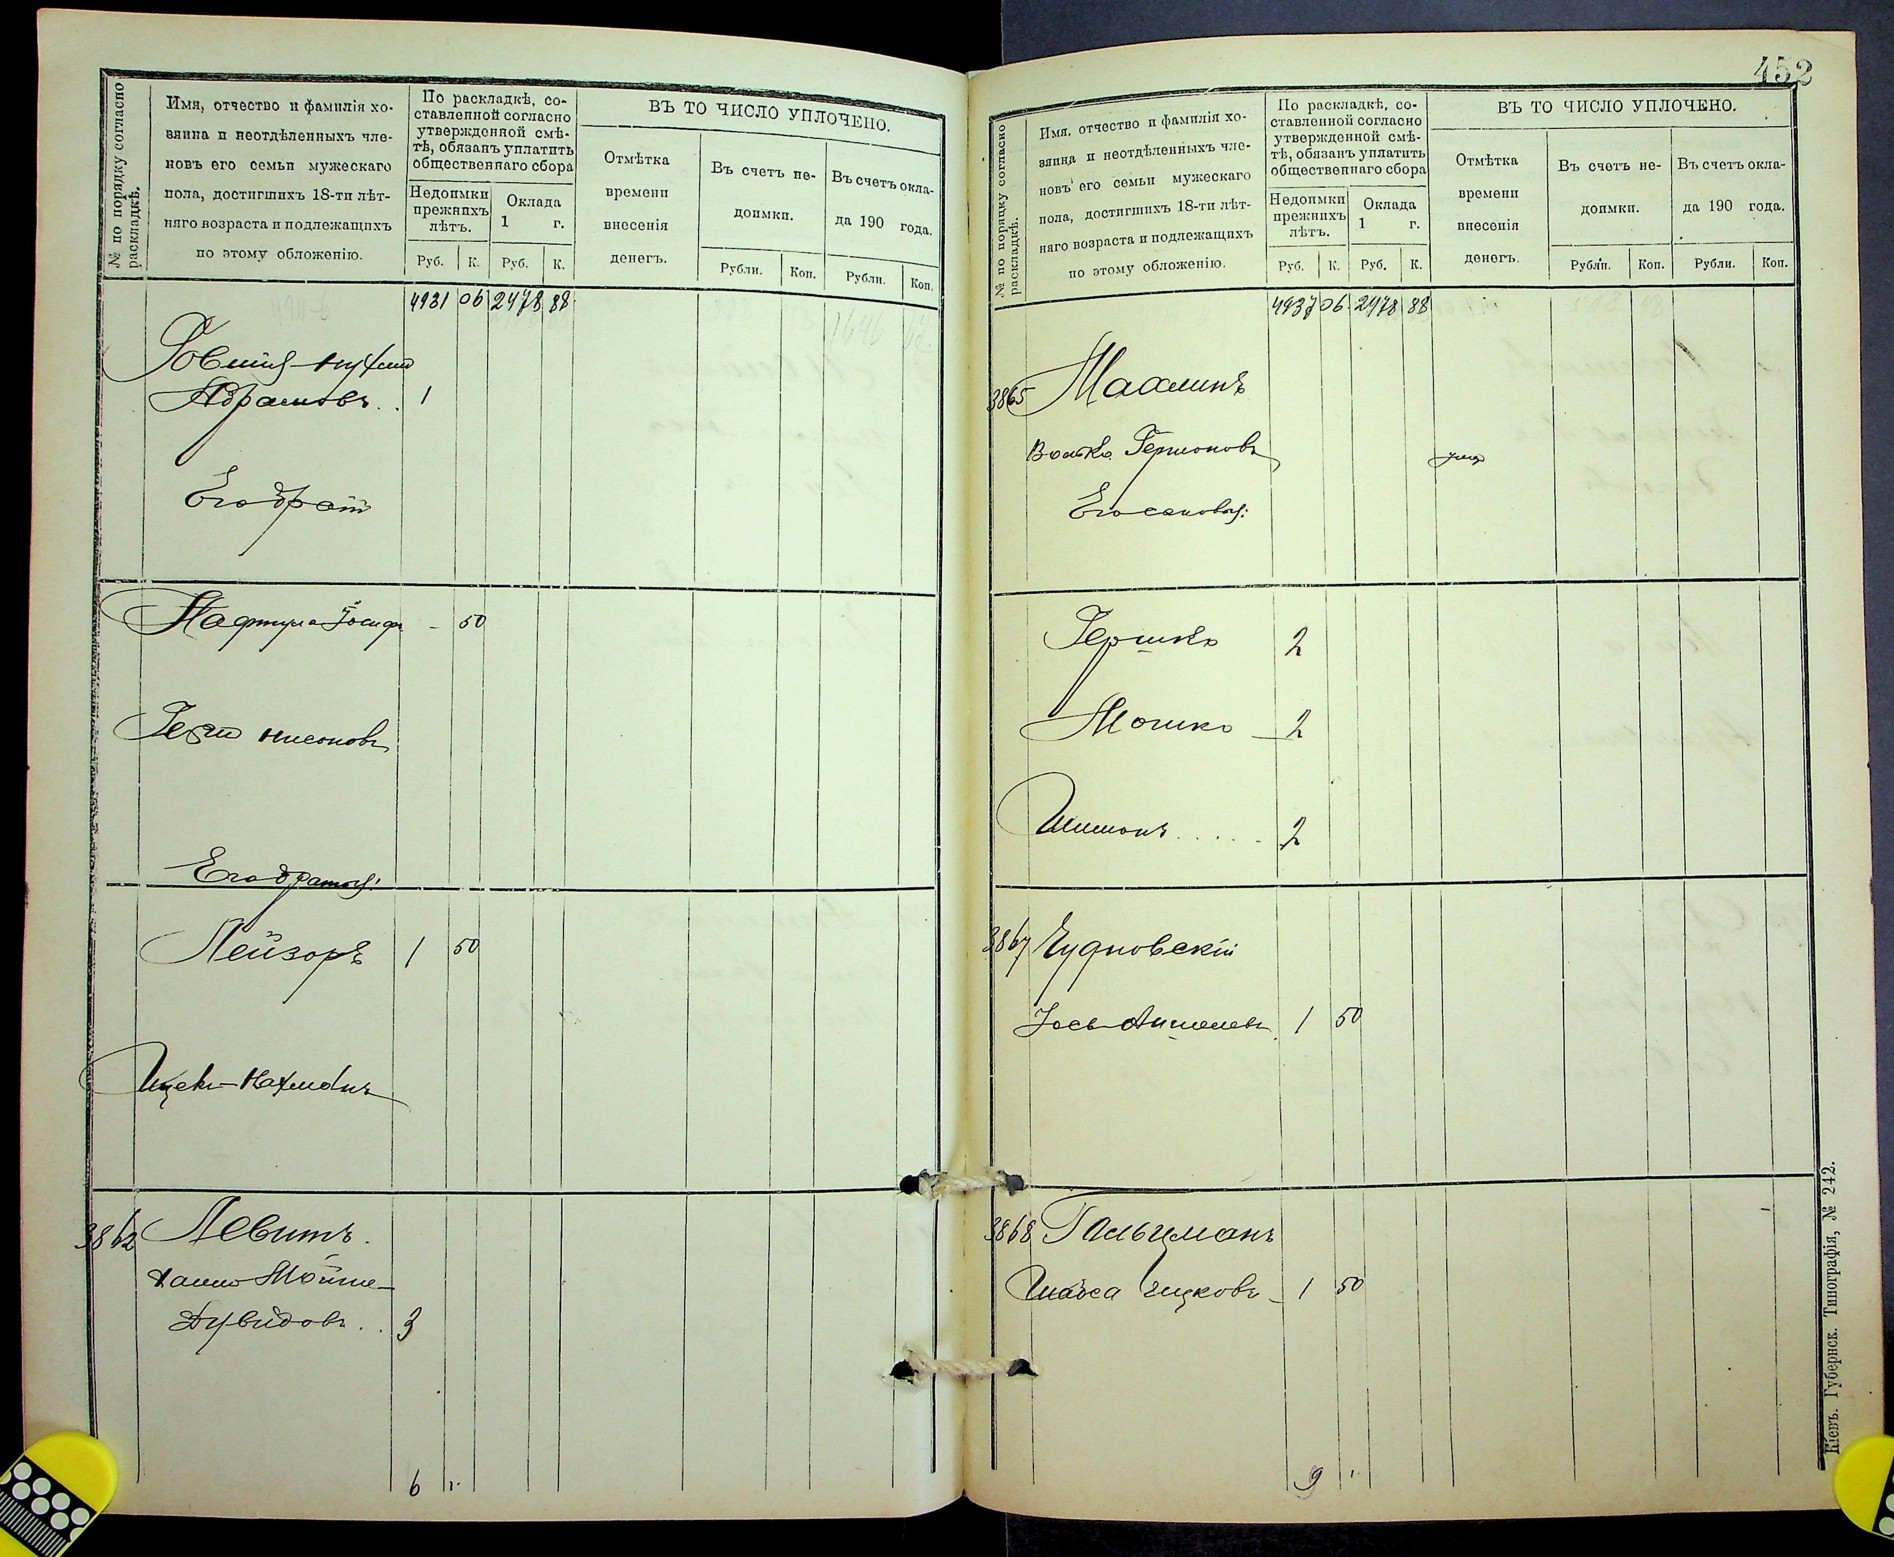 № по порядку согласно раскладкѣ.
Имя, отчество и фамилія хо-
зяина и неотдѣленныхъ чле-
новъ его семьи мужескаго
пола, достигшихъ 18-ти лѣт-
няго возраста и подлежащихъ
по этому обложенію.
По раскладкѣ, со-
ставленной согласно
утвержденной смѣ-
тѣ, обязанъ уплатить
общественнаго сбора
Недоимки
прежнихъ
лѣтъ.
Оклада
1 г.
Руб. К. Руб. К.
ВЪ ТО ЧИСЛО УПЛОЧЕНО.
Отмѣтка
времени
внесенія
денегъ.
Въ счетъ не-
доимки.
Въ счетъ окла-
да 190 года.
Рубли. Коп. Рубли. Коп.
4931 06 2478 88
Абрамовъ.. 1
Его братъ
50
Его братья:
Лейзоръ 1 50
3862 Левитъ.
Мойше-
Дувидовъ.. 3
6
452
№ по порядку согласно раскладкѣ.
Имя, отчество и фамилія хо-
зяина и неотдѣленныхъ чле-
новъ его семьи мужескаго
пола, достигшихъ 18-ти лѣт-
няго возраста и подлежащихъ
по этому обложенію.
По раскладкѣ, со-
ставленной согласно
утвержденной смѣ-
тѣ, обязанъ уплатить
общественнаго сбора
Недоимки
прежнихъ
лѣтъ.
Оклада
1 г.
Руб. К. Руб. К.
ВЪ ТО ЧИСЛО УПЛОЧЕНО.
Отмѣтка
времени
внесенія
денегъ.
Въ счетъ не-
доимки.
Въ счетъ окла-
да 190 года.
Рубли. Коп. Рубли. Коп.
4937 06 2478 88
3865 Махлинъ
Волько Гершоновъ
Его сыновья:
Гершко 2
Мошко 2
Шимонъ..... 2
3867 Чудновскій
Іось Аншелевъ 1 50
3868 Гальцманъ
Ицковъ 1 50
9
Кіевъ. Губернск. Типографія, № 242.